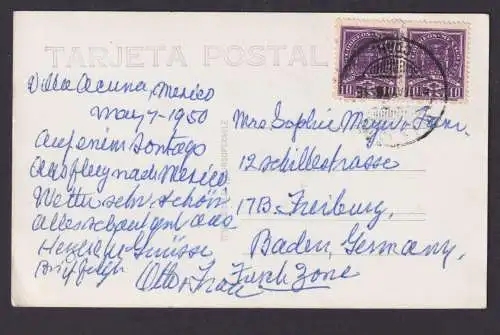 TARJETA POSTAL
Villa Acuna, Mexico
May 7-1950
Auf einem Sontags
Ausflug nach Mexico
Wetter sehr schön
alles schaut gut aus
Herzliche Grüsse
Brief folgt
Otto & Frau
Mrs Sophie Meyer & Fam.
12 Schillestrasse
17B. Freiburg,
Baden, Germany,
French Zone
CORREOS MEXICO
10
10